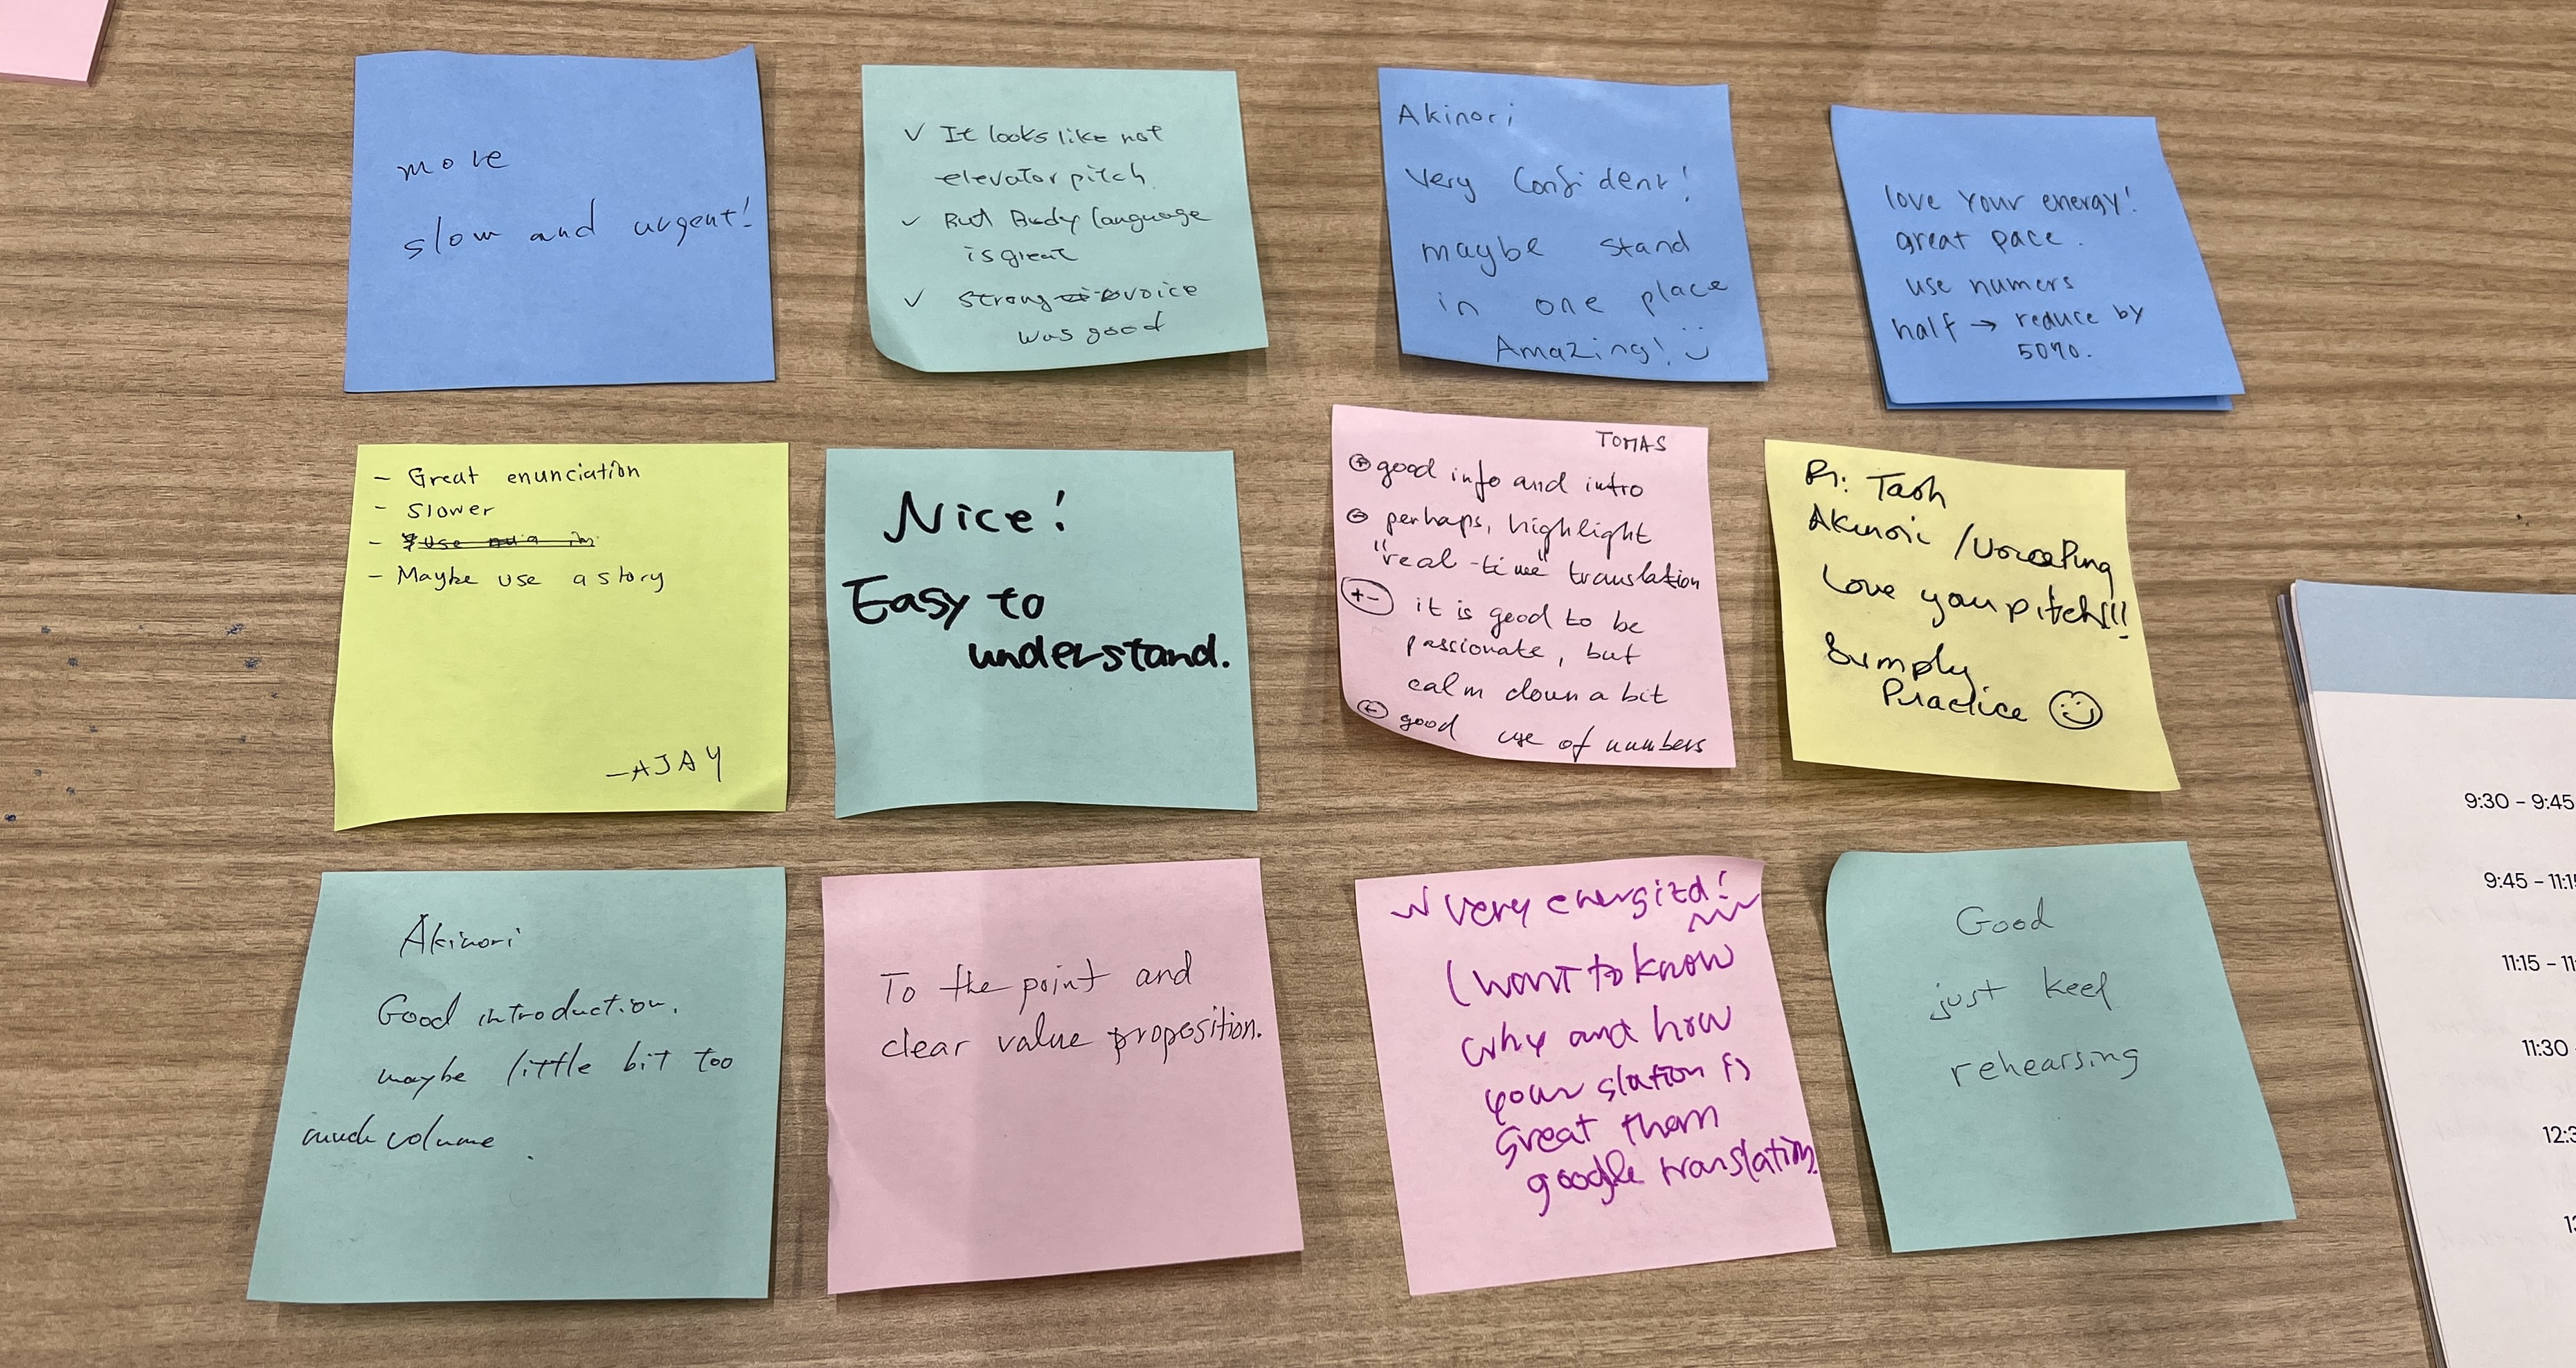 more
slow and urgent!
✓ It looks like not
elevator pitch
✓ But Body language
is great
✓ strong voice
was good
Akinori
Very Confident!
maybe stand
in one place
Amazing!
love your energy!
great pace.
use numers
half → reduce by
50%.
- Great enunciation
- Slower
- Maybe use a story
- AJAY
Nice!
Easy to
understand.
TOMAS
⊕ good info and intro
⊖ perhaps, highlight
"real-time" translation
+- it is good to be
passionate, but
calm down a bit
good use of numbers
Tash
Love your pitch!!!
Simply
Practice
Akinori
Good introduction.
maybe little bit too
much volume.
To the point and
clear value proposition.
very energizd!
I want to know
why and how
your slation is
great them
google translation
Good
just keep
rehearsing
9:30 - 9:45
9:45 - 11:1
11:15 - 11
11:30
12:3